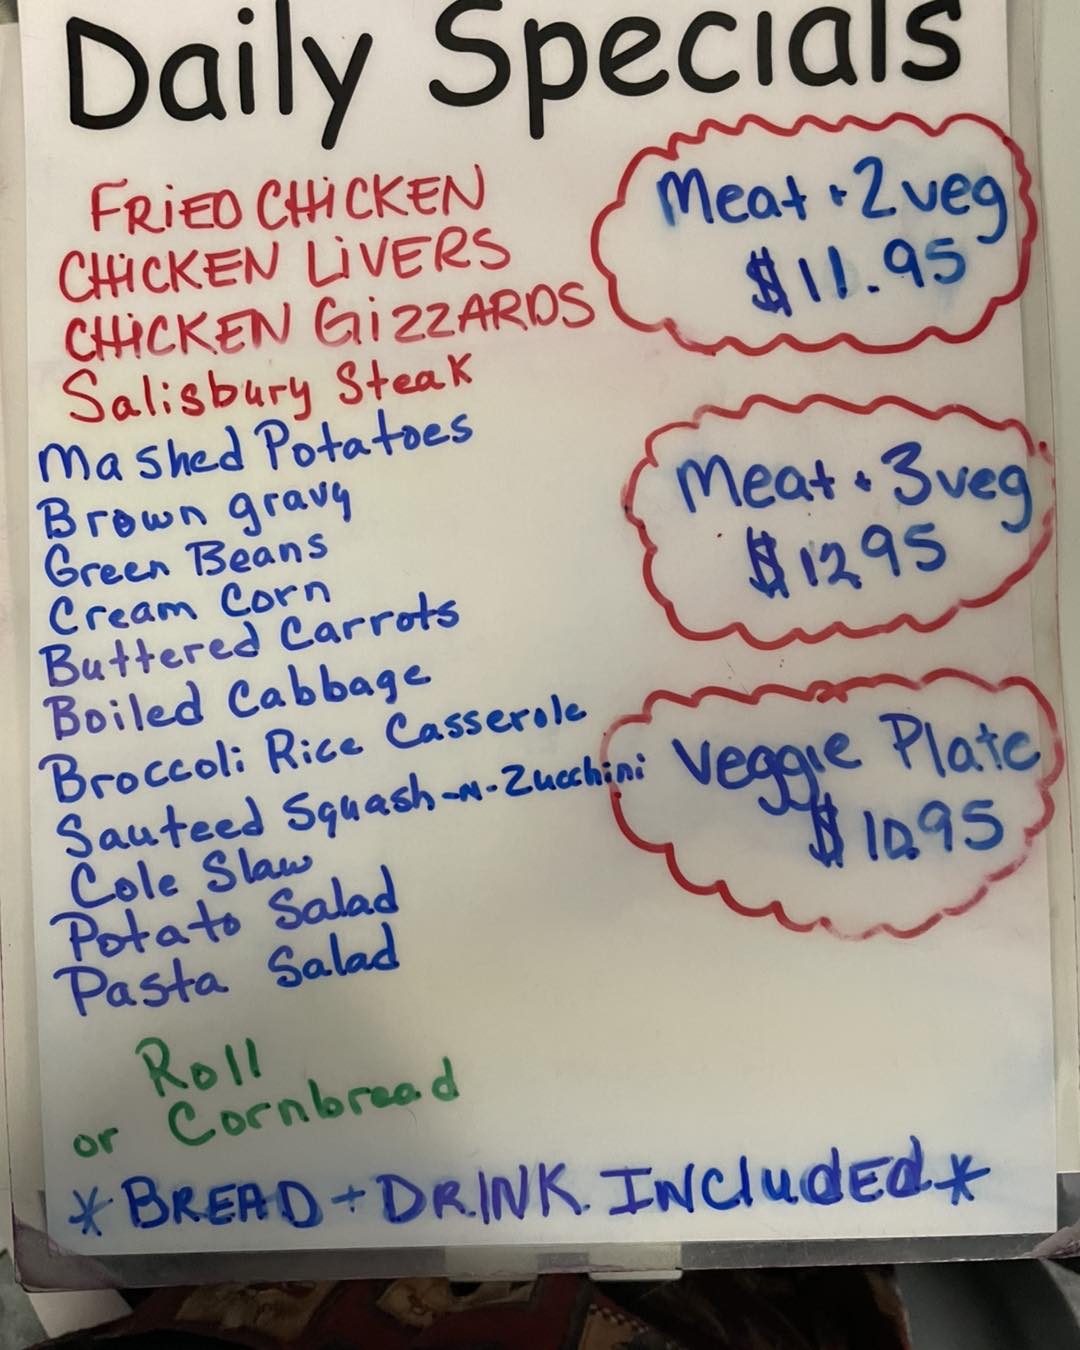 Daily Specials
FRiED CHiCKEN
CHiCKEN LiVERS
CHiCKEN GizzARDS
Salisbury Steak
Mashed Potatoes
Brown gravy
Green Beans
Cream Corn
Buttered Carrots
Boiled Cabbage
Broccoli Rice Casserole
Sauteed Squash-N-Zucchini
Cole Slaw
Potato Salad
Pasta Salad
Roll
or Cornbread
Meat + 2 veg
$11.95
Meat + 3 veg
$12.95
Veggie Plate
$10.95
*BREAD + DRINK INCluDED*